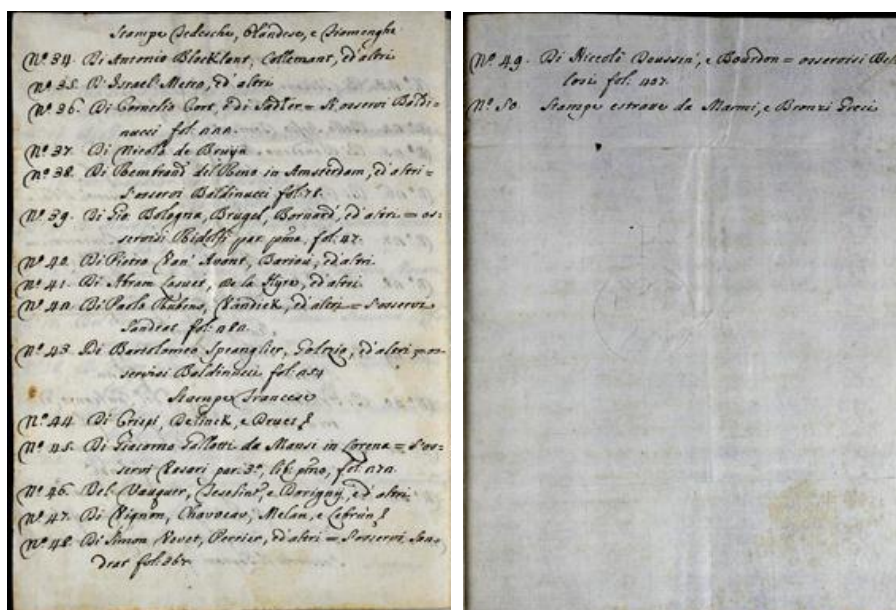 Stampe Tedesche, Olandese, e Fiamenghe
Nº 34. Di Antonio Blocklant, Collemant, ed'altri
Nº 35. D'Israel Meteo, ed'altri
Nº 36. Di Cornelio Cort, e di Sadler = S'osservi Baldi-
nucci fol:
Nº 37. Di Nicola de Bruyn
Nº 38. Di Rembrand del Reno in Amsterdam, ed'altri =
S'osservi Baldinucci fol: 78.
Nº 39. Di Gio: Bologna, Brugel, Bernard, ed'altri = os-
servisi Ridolfi par: pmã, fol: 47.
Nº 40. Di Pietro Van' Avont, ed'altri.
Nº 41. Di Abram de la Hyre, ed'altri
Di Paolo Rubino, Vandick, ed'altri = S'osservi
Sandrat fol:
Nº 43. Di Bartolomeo Spranglier, Golzio, ed'altri = os-
servisi Baldinucci fol:
Stampe Francese
Nº 44. Di Crispi, Delinck, e
Nº 45. Di Giacomo Gallotti da Mansi in Lorena = S'os-
servi Vasari par: 3ª, lib: pmo, fol:
Nº 46. Del e Dorigny, ed'altri
Nº 47. Di Vignon, Chavaeau, Melan, e Lebrun,
Nº 48. Di Simon Vovet, Perrier, ed'altri = S'osservi San-
drat fol: 367.
Nº 49. Di Niccolò Poussin', e Bourdon = osservisi Bel-
lori fol: 407.
Nº 50. Stampe estratte da Marmi, e Bronzi Greci